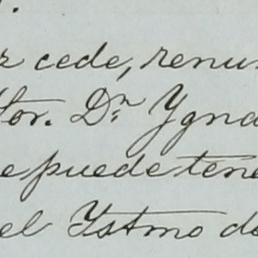 r cede, renun
tor. Dn Ygna
e puede tene
el Ystmo de